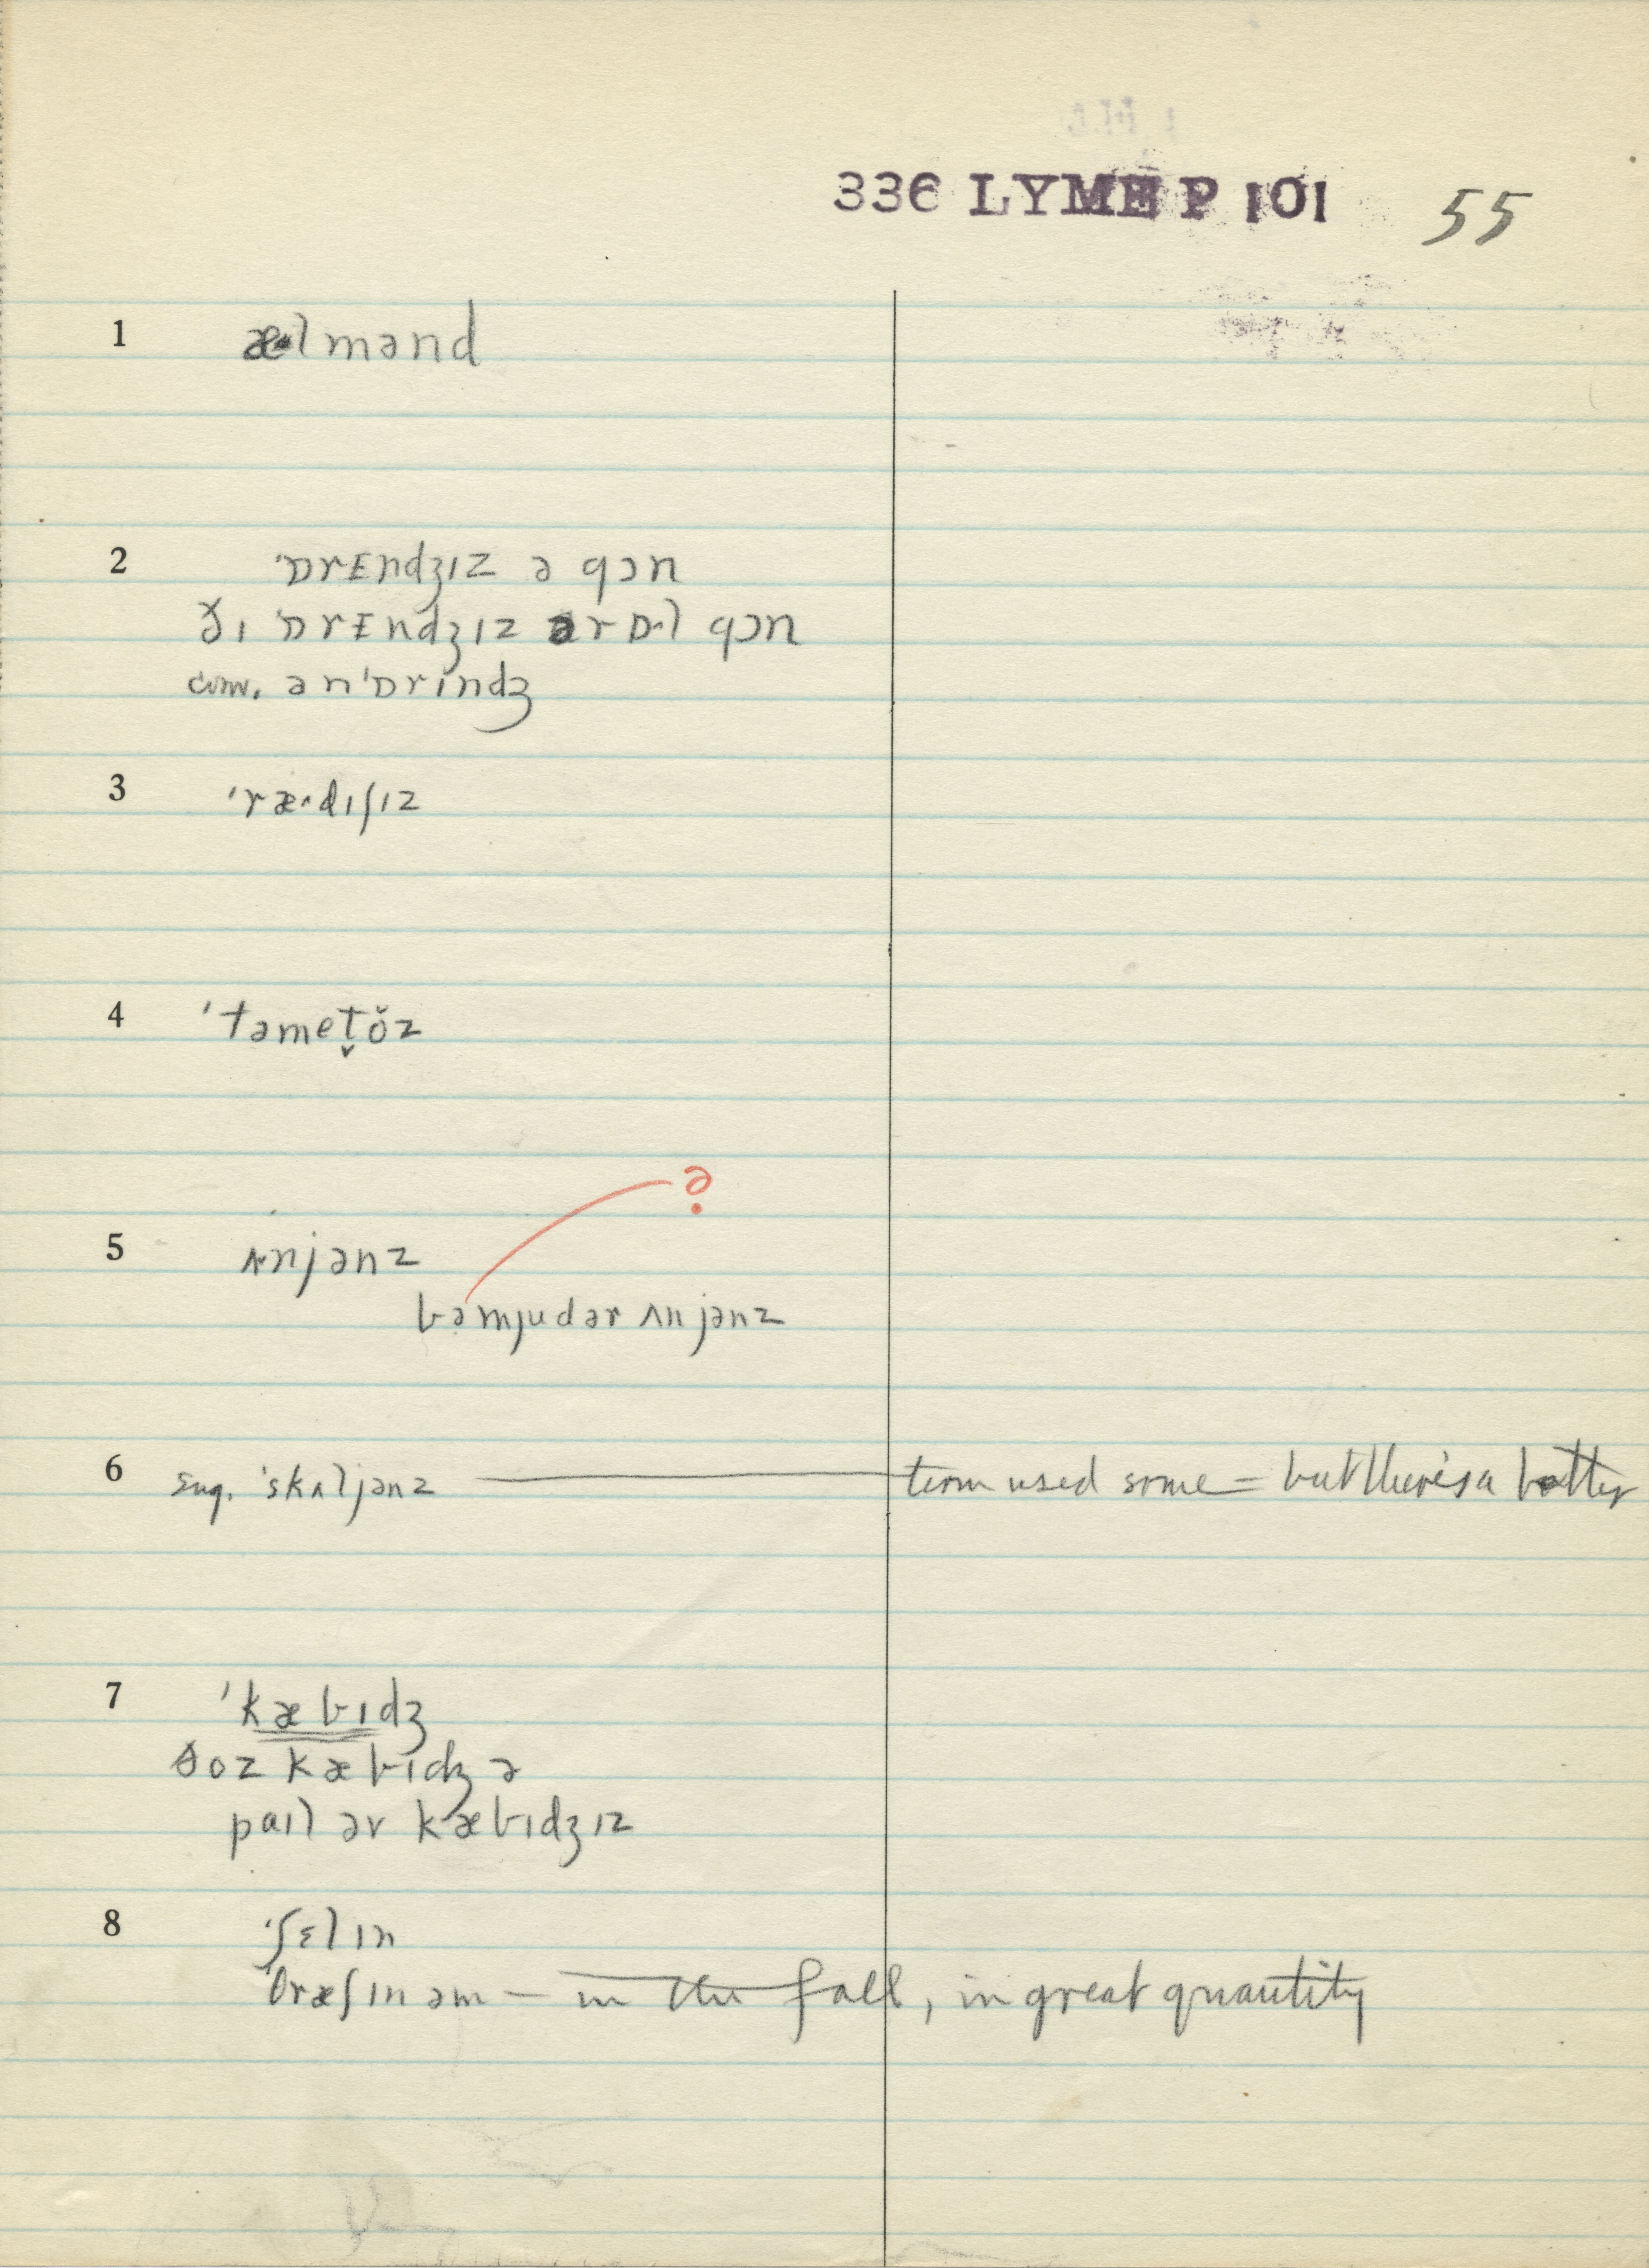 336 LYME P 101 55
1 æ·lmənd
2 'ɒrɛndʒɪz ə qɔn
ðɪ 'ɒrɛndʒɪz ər ɒ·l qɔn
cvw. ən'ɒrɪndʒ
3 'ræ·dɪʃɪz
4 'tәmet̬ŏz
?
5 ʌnjənz
bəmjudər ʌnjənz
6 sug. 'skʌljənz — term used some = but there's a better
7 'kæbɪdʒ
ðoz kæbɪdʒə
paɪl əv kæbɪdʒɪz
8 'ʃɛlɪn
θræʃɪn əm – in the fall, in great quantity